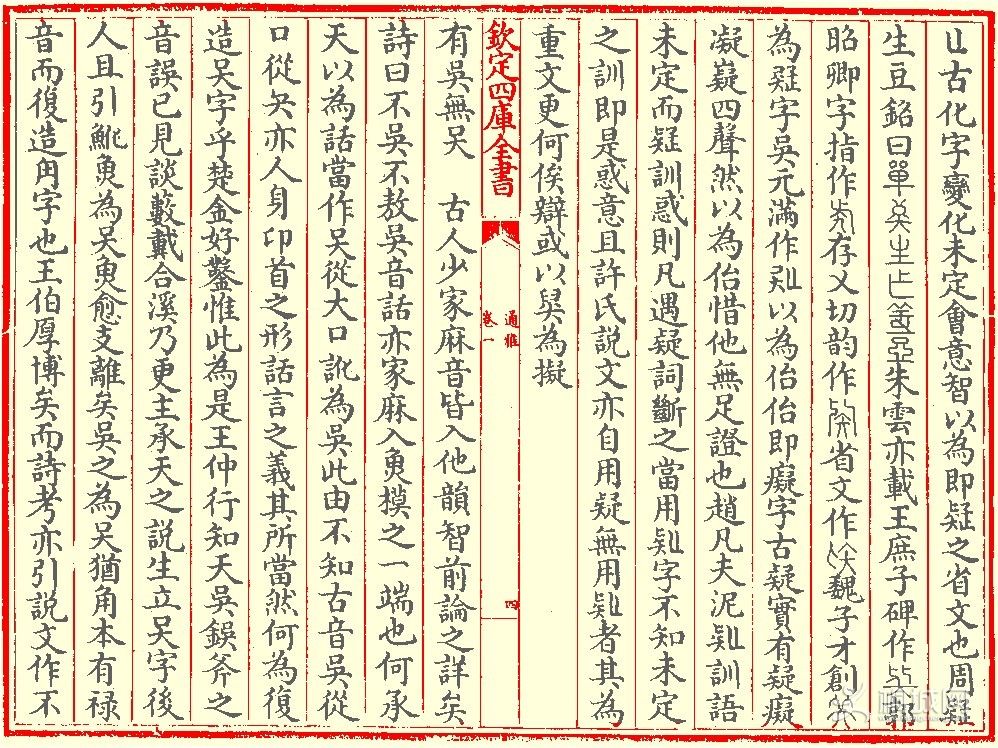 古化字變化未定會意智以為即疑之省文也周疑
生豆銘曰單生朱雲亦載王庶子碑作郭
昭卿字指作存乂切韵作省文作魏子才創
為疑字吳元滿作以為佁佁即癡字古疑實有疑癡
凝嶷四聲然以為佁惜他無足證也趙凡夫泥訓語
未定而疑訓惑則凡遇疑詞斷之當用字不知未定
之訓即是惑意且許氏說文亦自用疑無用者其為
重文更何俟辯或以為擬
欽定四庫全書
通雅
卷一
四
有吳無吴 古人少家麻音皆入他韻智前論之詳矣
詩曰不吳不敖吳音話亦家麻入魚模之一端也何承
天以為話當作吴從大口訛為吳此由不知古音吳從
口從矢亦人身卬首之形話言之義其所當然何為復
造吴字乎楚金好鑿惟此為是王仲行知天吳鋘斧之
音誤已見談藪戴合溪乃更主承天之說生立吴字後
人且引魚為吴魚愈支離矣吳之為吴猶角本有祿
音而復造甪字也王伯厚博矣而詩考亦引說文作不